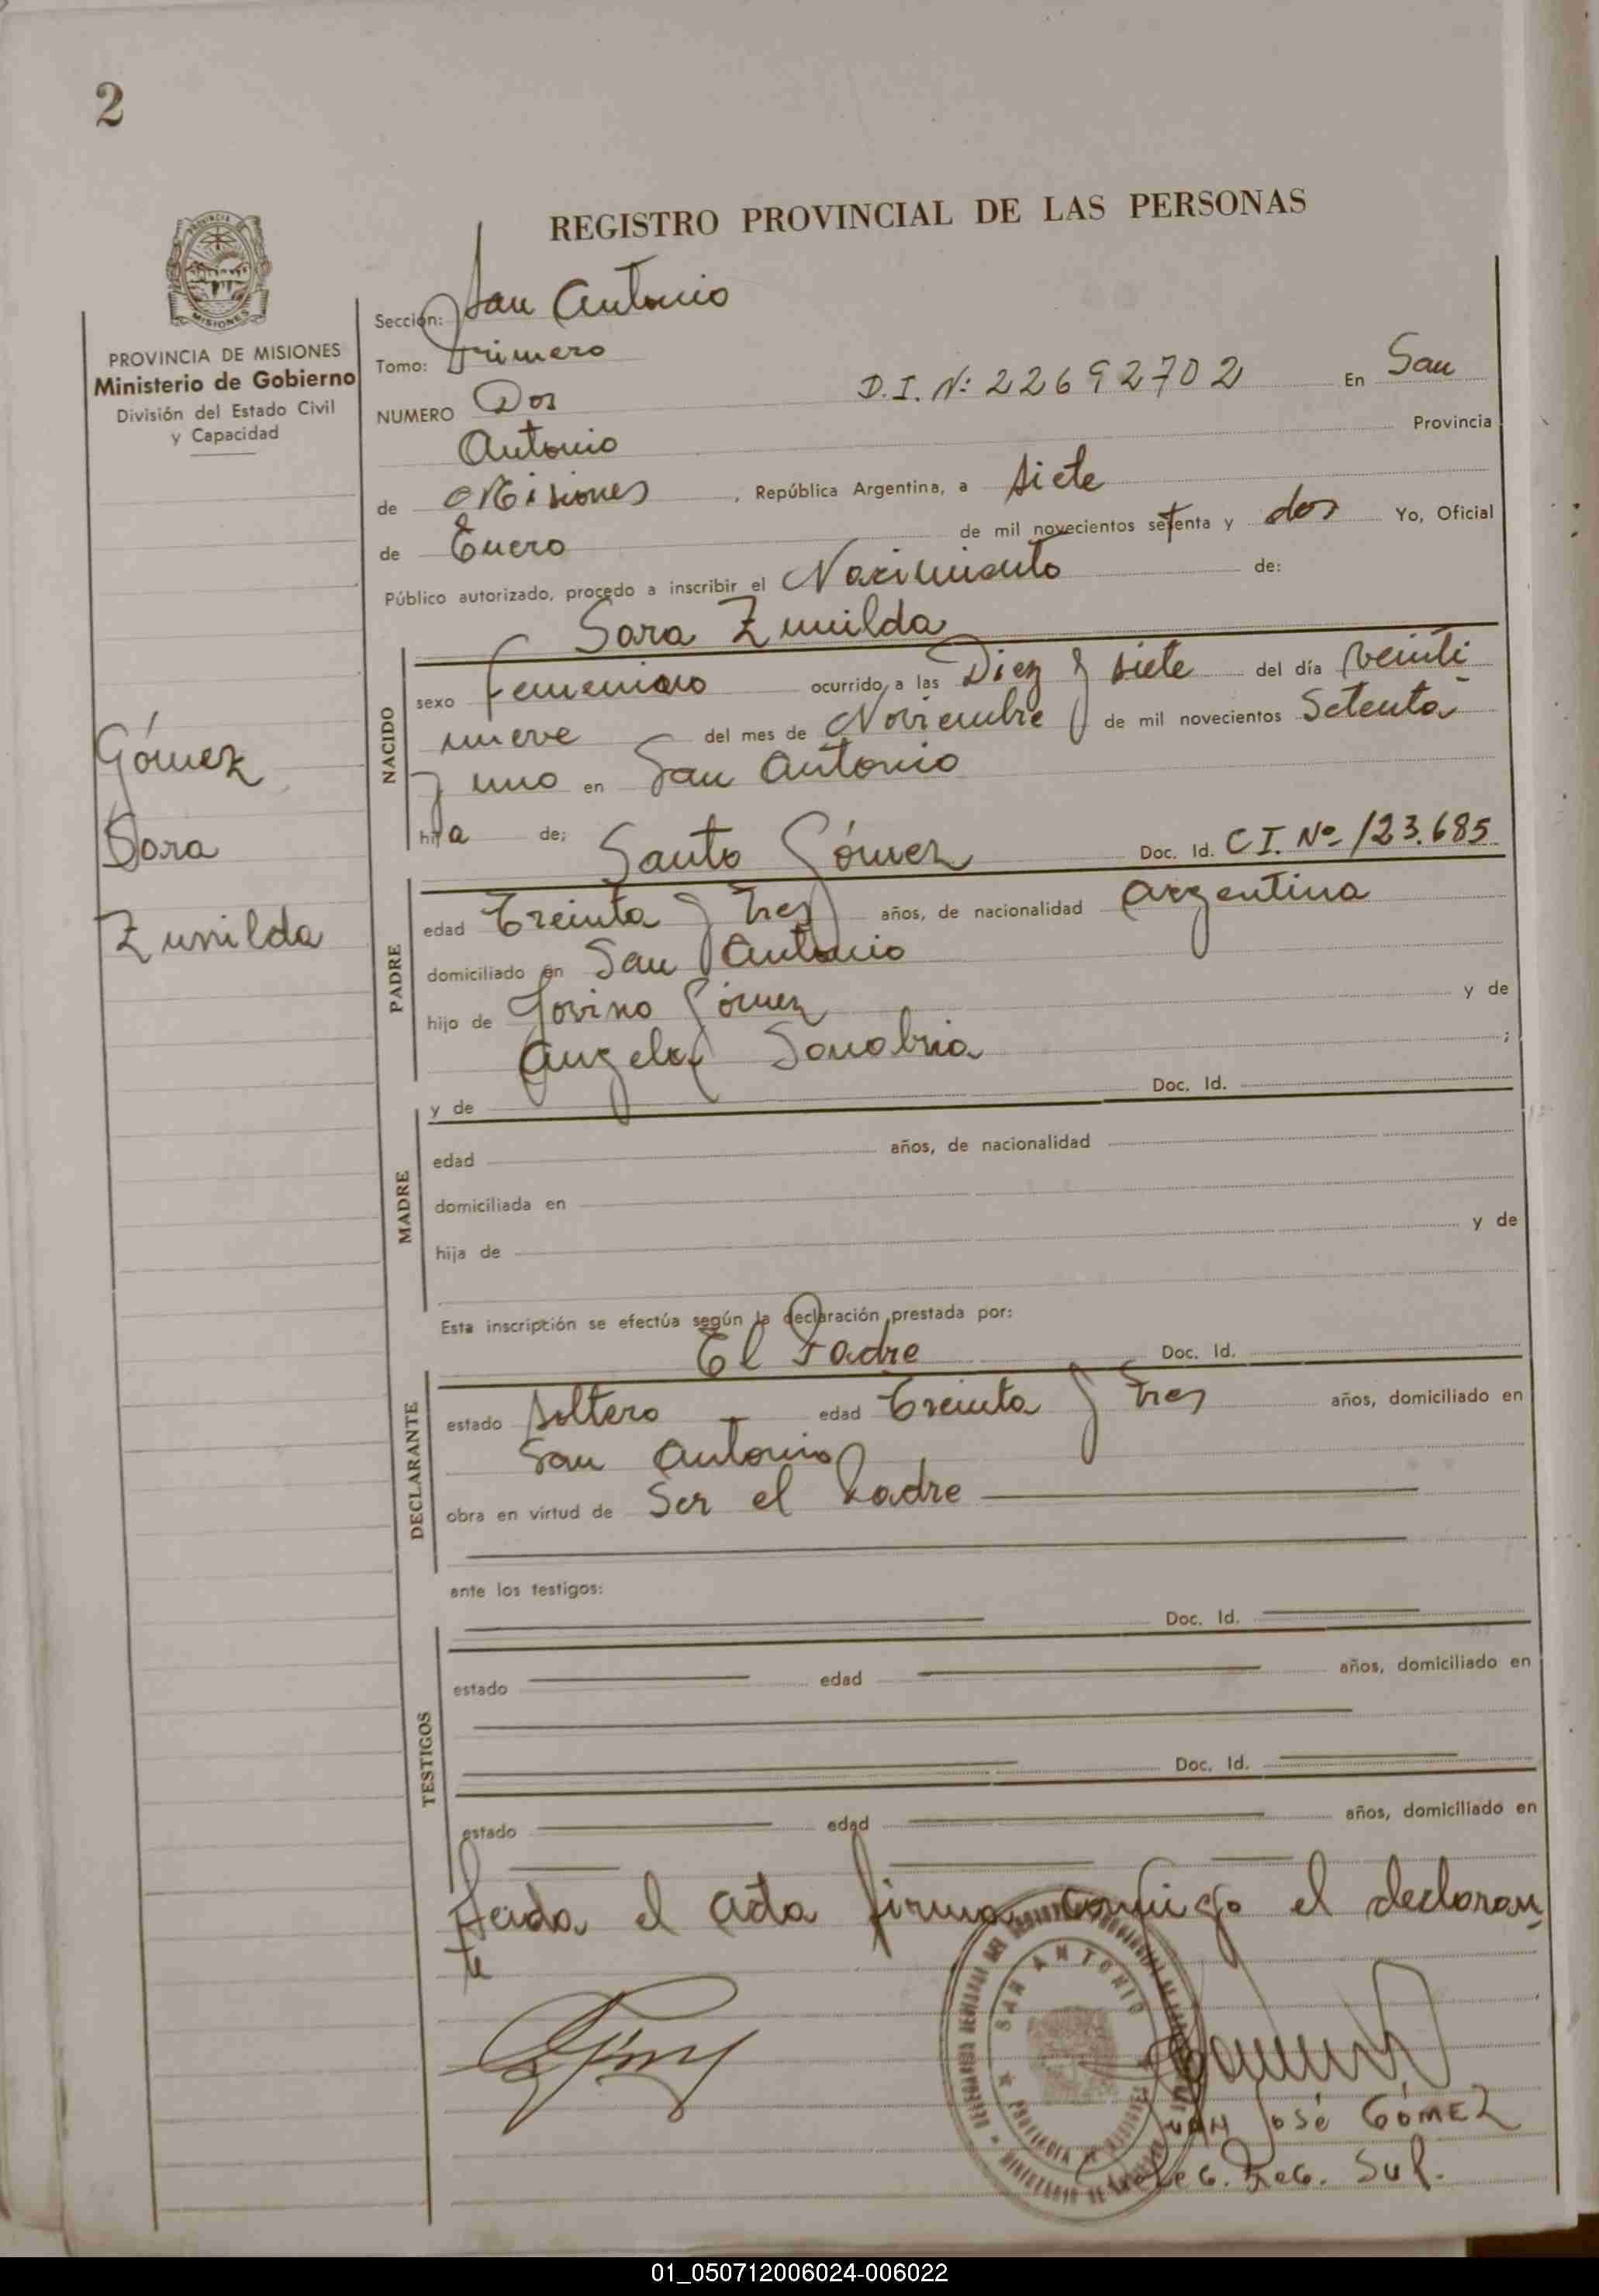 2
REGISTRO PROVINCIAL DE LAS PERSONAS
PROVINCIA DE MISIONES
Ministerio de Gobierno
División del Estado Civil
y Capacidad
Gómez
Sara
Zunilda
Sección: San Antonio
Tomo: Primero
NUMERO Dos D.I. Nº: 22692702 En San
Antonio Provincia
de Misiones , República Argentina, a siete
de Enero de mil novecientos setenta y dos Yo, Oficial
Público autorizado, procedo a inscribir el Nacimiento de:
Sara Zunilda
NACIDO
sexo femenino ocurrido a las Diez y siete del día veinti
nueve del mes de Noviembre de mil novecientos Setenta
y uno en San Antonio
hija de: Santo Gómez Doc. Id. C I. Nº 123.685
PADRE
edad Treinta y Tres años, de nacionalidad Argentina
domiciliado en San Antonio
hijo de Jovino Gómez y de
Angela Sanabria ;
y de Doc. Id.
MADRE
edad años, de nacionalidad
domiciliada en
hija de y de
Esta inscripción se efectúa según la declaración prestada por:
El Padre Doc. Id.
DECLARANTE
estado soltero edad Treinta y Tres años, domiciliado en
San Antonio
obra en virtud de Ser el Padre
ante los testigos:
Doc. Id.
TESTIGOS
estado edad años, domiciliado en
Doc. Id.
estado edad años, domiciliado en
Leida el acta firma conmigo el declaran
te
SAN ANTONIO
PROVINCIA DE MISIONES
JUAN JOSé GÓMEZ
Reg. Sup.
01_050712006024-006022